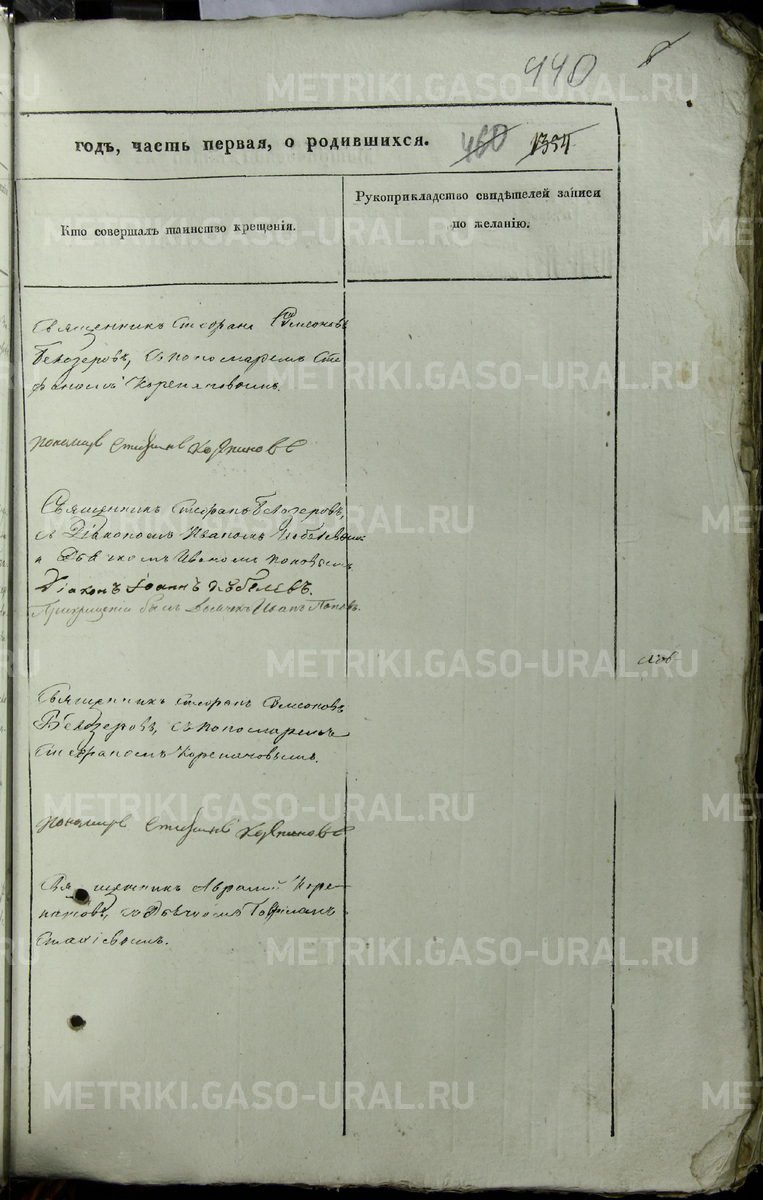 440
годъ, часть первая, о родившихся. 460 1354
Кто совершалъ таинство крещенія.
Рукоприкладство свидѣтелей записи
по желанію.
Священникъ Стефанъ Симеоновъ
Белозеровъ, съ пономаремъ Сте
фаномъ Корепановымъ.
пономарь Стефанъ Корепановъ
Священникъ Стефанъ Белозеровъ,
съ Діакономъ Иваномъ
и Дьячкомъ Иваномъ Поповымъ
Діаконъ Іоаннъ
При крещеніи былъ Дьячекъ Иванъ Поповъ.
Священникъ Стефанъ Симеоновъ
Белозеровъ, съ пономаремъ
Стефаномъ Корепановымъ.
пономарь Стефанъ Корепановъ
Священникъ Авраамій Коре
пановъ, съ Дьячкомъ Гавріиломъ
Стахіевымъ.
METRIKI.GASO-URAL.RU